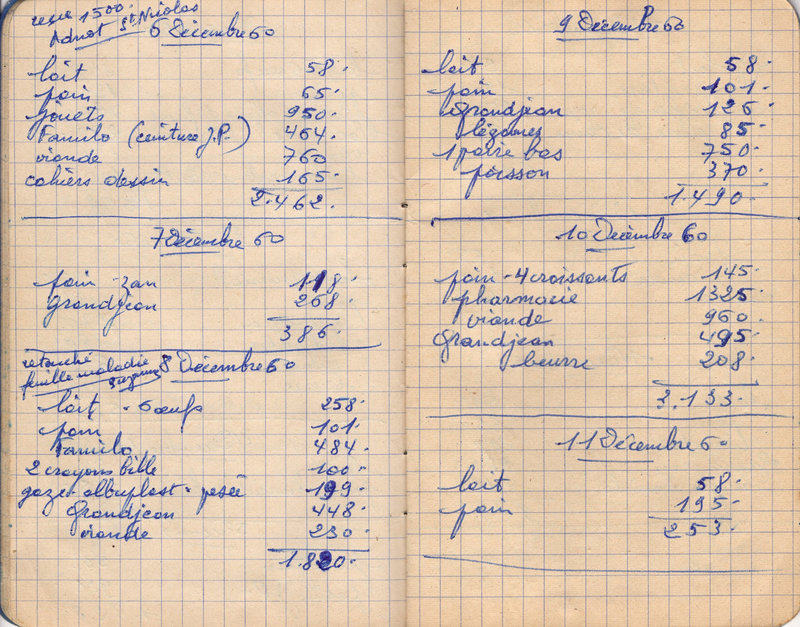 reçu 1500.
Adnot St Nicolas
6 Décembre 60
lait 58.
pain 65.
jouets 950.
Familo (ceinture J.P.) 464.
viande 760
cahiers dessin 165.
2.462.
7 Décembre 60
pain - zan 118.
Grandjean 268.
386.
retouché
feuille maladie
Suzanne 8 Décembre 60
lait - 6 œufs 258.
pain 101.
Familo 484.
2 crayons bille 100.
gaze - albuplast - pesée 199.
Grandjean 448.
viande 230.
1.820.
9 Décembre 60
lait 58.
pain 101.
Grandjean 126.
légumes 85.
1 paire bas 750.
poisson 370.
1.490.
10 Décembre 60
pain - 4 croissants 145.
pharmacie 1325.
viande 960.
Grandjean 495.
beurre 208.
3.133.
11 Décembre 60
lait 58.
pain 195.
253.